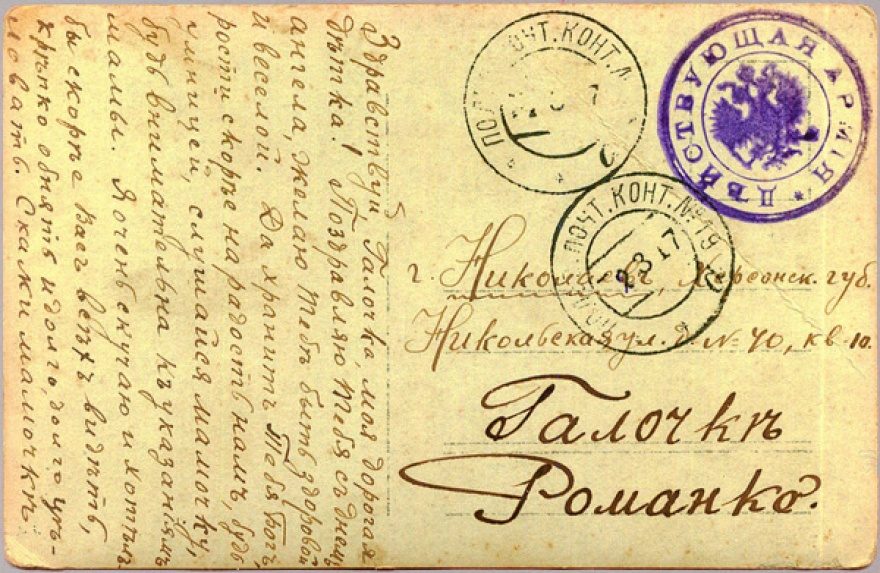 Здравствуй, Галочка, моя дорогая
дѣтка! Поздравляю Тебя съ днемъ
ангела, желаю Тебѣ быть здоровой
и веселой. Да хранитъ Тебя Богъ,
рости скорѣе на радость намъ, будь
умницей, слушайся мамочку,
будь внимательна къ указаніямъ
мамы. Я очень скучаю и хотѣлъ
бы скорѣе Васъ всѣхъ видѣть,
крѣпко обнять и долго, долго цѣ-
ловать. Скажи мамочкѣ
ПОЧТ. КОНТ.
ДѢЙСТВУЮЩАЯ АРМІЯ
ПОЧТ. КОНТ. №
2 3 17
г. Николаевъ, Херсонск. губ.
Никольская ул. д. № 40, кв. 10.
Галочкѣ
Романко.